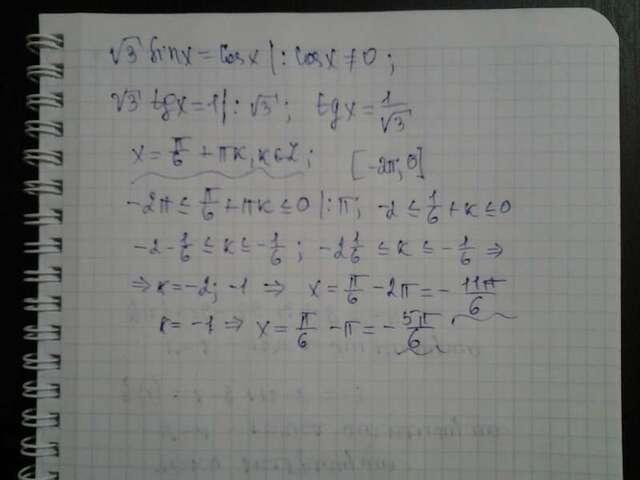 √3 sinx = cosx |: cosx ≠ 0;
√3 tgx = 1 |: √3; tgx = 1/√3
x = π/6 + πk, k∈Z; [-2π; 0]
-2π ≤ π/6 + πk ≤ 0 |: π; -2 ≤ 1/6 + k ≤ 0
-2 - 1/6 ≤ k ≤ -1/6; -2 1/6 ≤ k ≤ -1/6 ⇒
⇒ k = -2; -1 ⇒ x = π/6 - 2π = -11π/6
k = -1 ⇒ x = π/6 - π = -5π/6